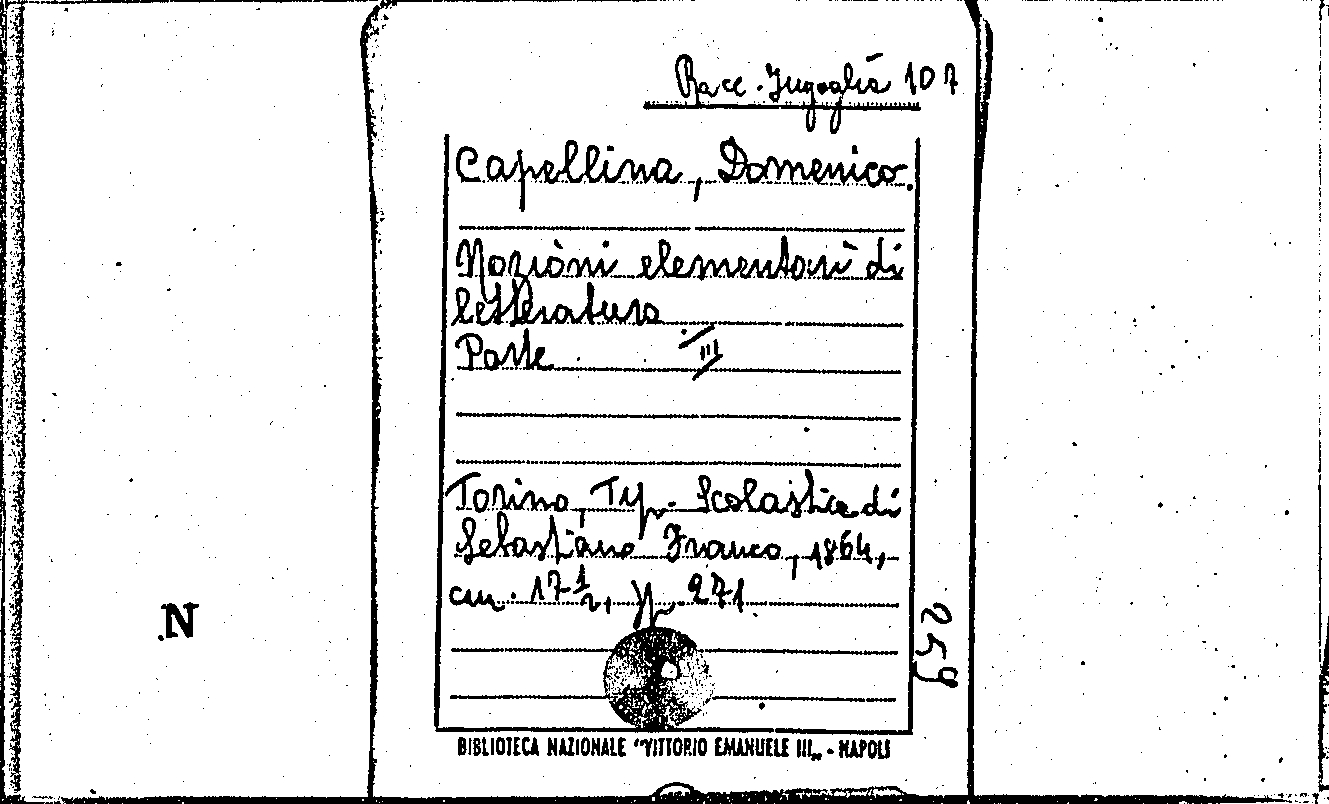 Racc. Jugoglia 107
Capellina, Domenico.
Nozioni elementari di
letteratura
Parte III
Torino, Typ. Scolastica di
Sebastiano Franco, 1864,
cm. 17 1/2, pp. 271.
259
N
BIBLIOTECA NAZIONALE "VITTORIO EMANUELE III„ - NAPOLI